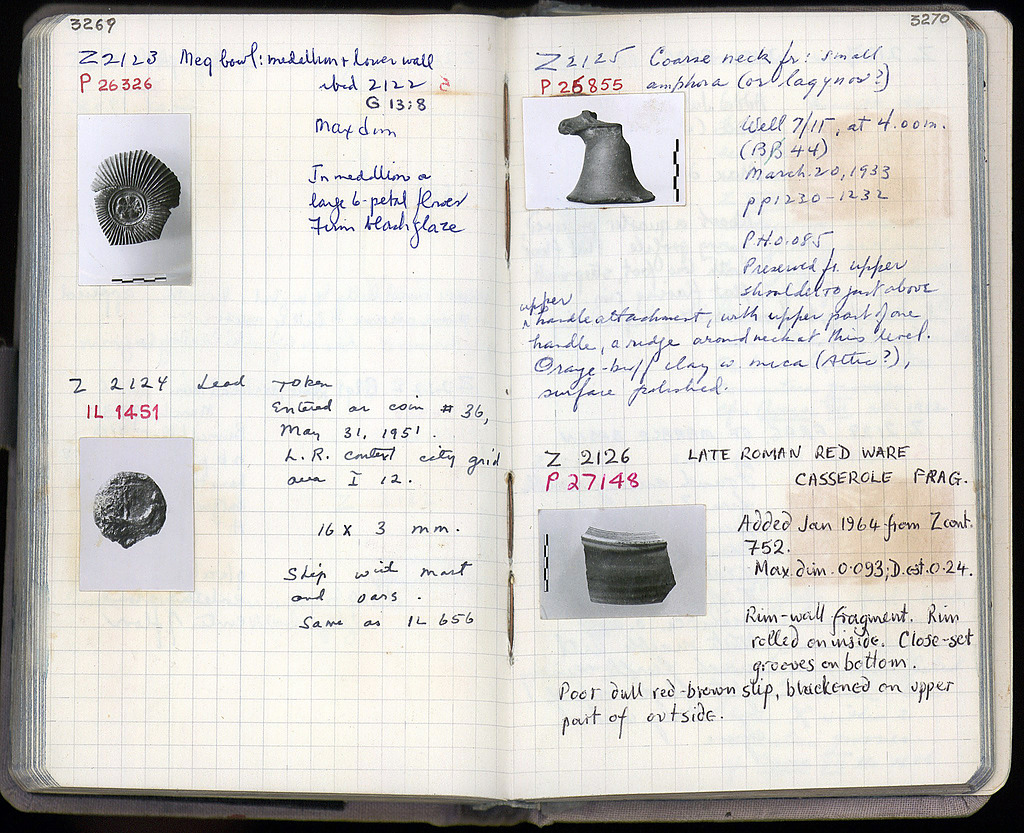 3269
Z 2123 Meg bowl: medallion + lower wall
P 26326
ibid 2122
G 13:8
Max dim
In medallion a
large 6-petal flower
Firm black glaze
Z 2124 Lead Token
IL 1451
Entered as coin # 36,
May 31, 1951.
L.R. context city grid
area I 12.
16 x 3 mm.
Ship with mast
and oars.
Same as IL 656
3270
Z 2125 Coarse neck fr: small
P 26855 amphora (or lagynos?)
Well 7/15, at 4.00m.
(BB 44)
March 20, 1933
pp 1230-1232
P.H. 0.085
Preserved fr. upper
shoulder to just above
upper
handle attachment, with upper part of one
handle, a ridge around neck at this level.
Orange-buff clay w mica (Attic?),
surface polished.
Z 2126 LATE ROMAN RED WARE
P 27148 CASSEROLE FRAG.
Added Jan 1964 from Z cont.
752.
Max dim. 0.093; D. est. 0.24.
Rim-wall fragment. Rim
rolled on inside. Close-set
grooves on bottom.
Poor dull red-brown slip, blackened on upper
part of outside.